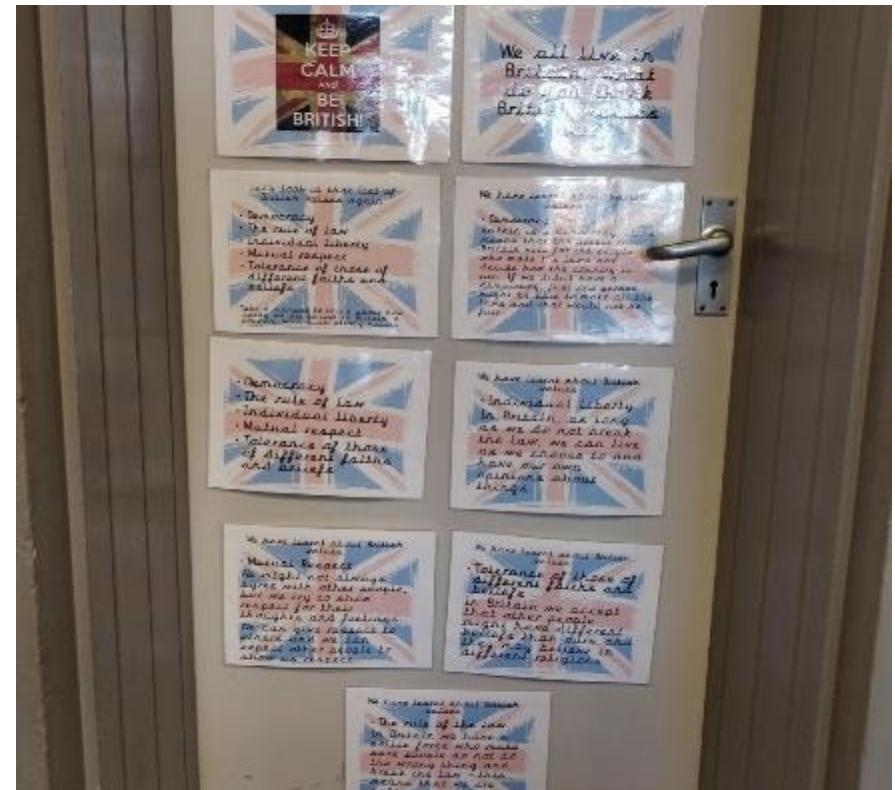 KEEP
CALM
AND
BE
BRITISH!
We all live in
Britain, what
do you think
British values
Let's look at that list of
British values again
• Democracy
• The rule of law
• Individual liberty
• Mutual respect
• Tolerance of those of
different faiths and
beliefs
We have learnt about British
values
• Democracy
Britain is a democracy, this
means that the people in
Britain vote for the people
who make the laws and
decide how the country is
run. If we didn't have a
democracy, just one person
might be able to make all the
laws and that would not be
fair.
• Democracy
• The rule of law
• Individual liberty
• Mutual respect
• Tolerance of those
of different faiths
and beliefs
We have learnt about British
values
• Individual liberty
In Britain as long
as we do not break
the law, we can live
as we choose to and
have our own
opinions about
things
We have learnt about British
values
• Mutual Respect
We might not always
agree with other people,
but we try to show
respect for their
thoughts and feelings
We can give respect to
others and we can
expect other people to
show us respect
We have learnt about British
values
• Tolerance of those of
different faiths and
beliefs
In Britain we accept
that other people
might have different
beliefs than ours and
the may believe in
different religions
We have learnt about British
values
• The rule of the law
In Britain we have a
police force who make
sure people do not do
the wrong thing and
break the law – this
means that we are